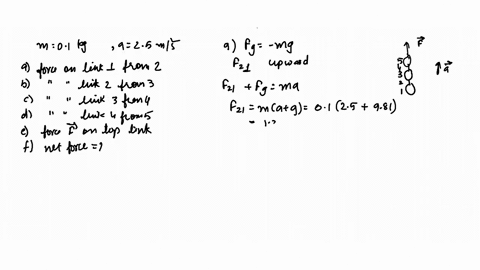 m = 0.1 kg , a = 2.5 m/s
a) force on link 1 from 2
b) " " link 2 from 3
c) " " link 3 from 4
d) " " link 4 from 5
e) force F⃗ on top link
f) net force = ?
a) Fg = -mg
F21 upward
F21 + Fg = ma
F21 = m(a+g) = 0.1 (2.5 + 9.81)
= 1.2
F⃗
5
4
3
2
1
a⃗